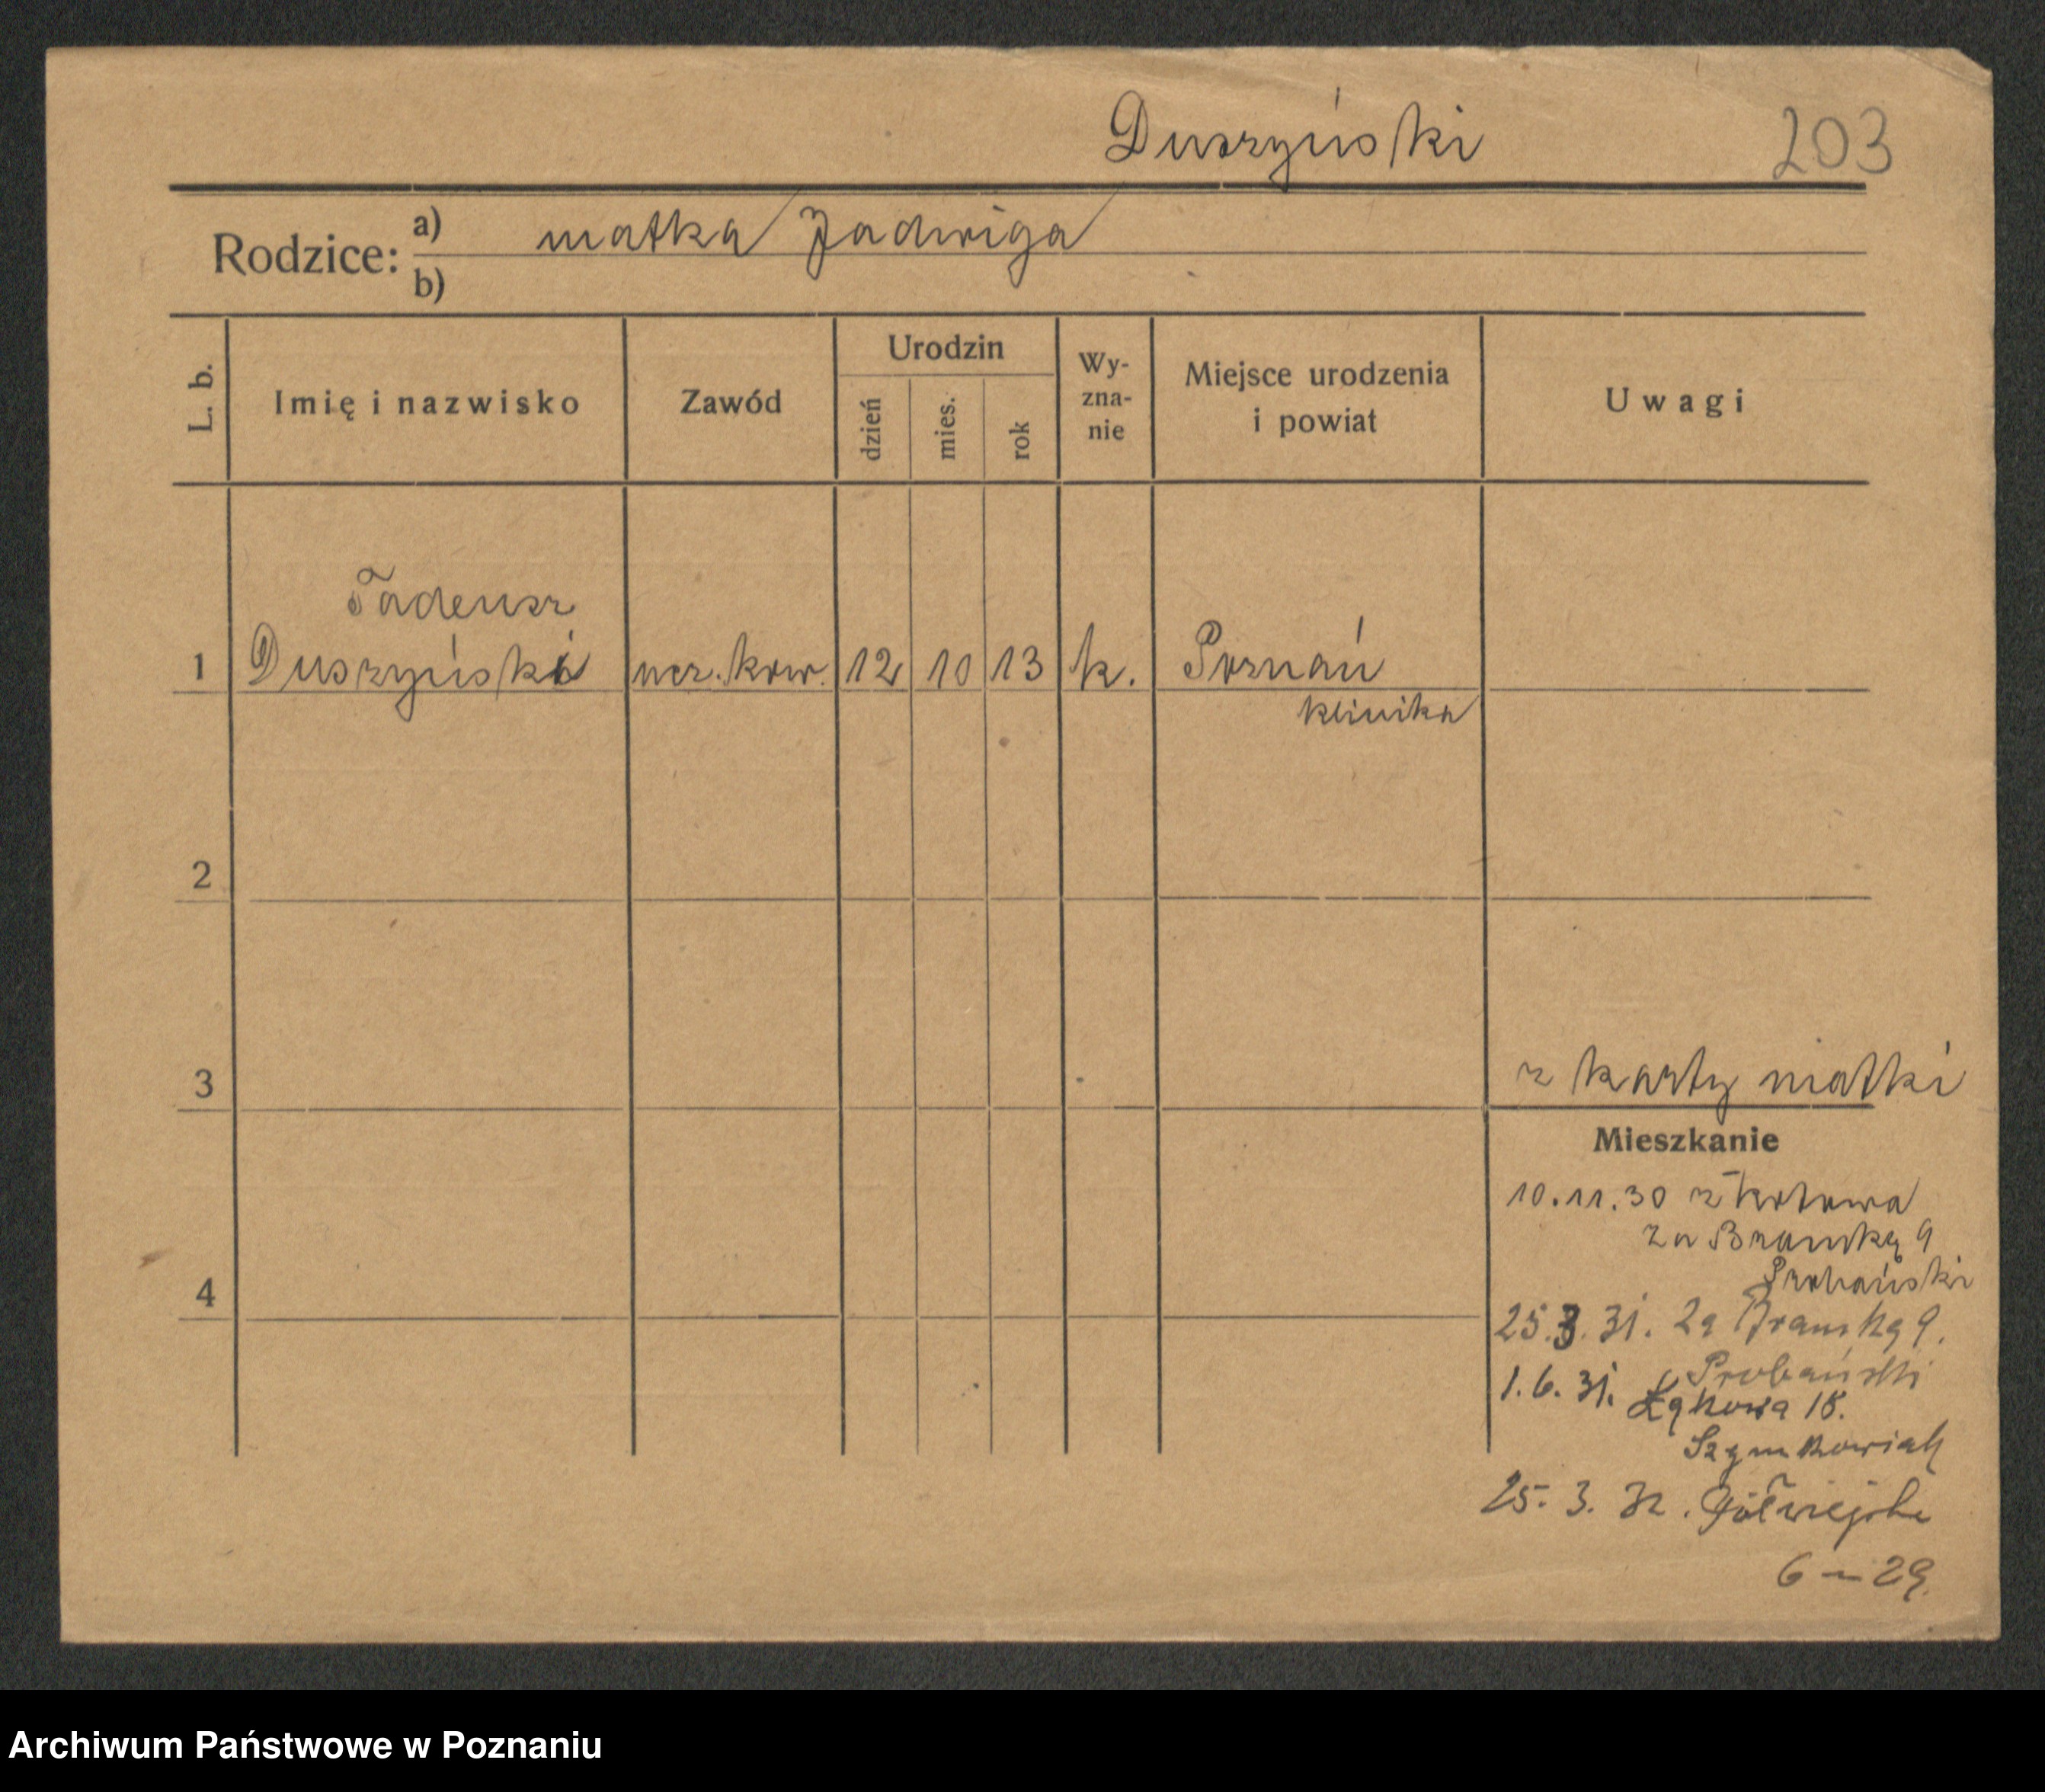 Duszyński 203
Rodzice: a) matka Jadwiga
b)
L. b. Imię i nazwisko Zawód Urodzin dzień mies. rok Wy-zna-nie Miejsce urodzenia i powiat Uwagi
Tadeusz
1 Duszyński ucz. kow. 12 10 13 k. Poznań
klinika
2
3 z karty matki
Mieszkanie
10.11.30 z Kotowa
za Bramką 9
4 Probański
25.3.31. Za Bramką 9.
Probański
1.6.31. Łąkowa 18.
Szymkowiak
25.3.32. Półwiejska
6 — 29.
Archiwum Państwowe w Poznaniu